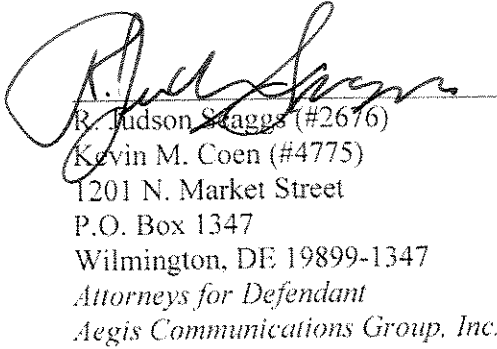 R. Judson Scaggs (#2676)
Kevin M. Coen (#4775)
1201 N. Market Street
P.O. Box 1347
Wilmington, DE 19899-1347
Attorneys for Defendant
Aegis Communications Group, Inc.